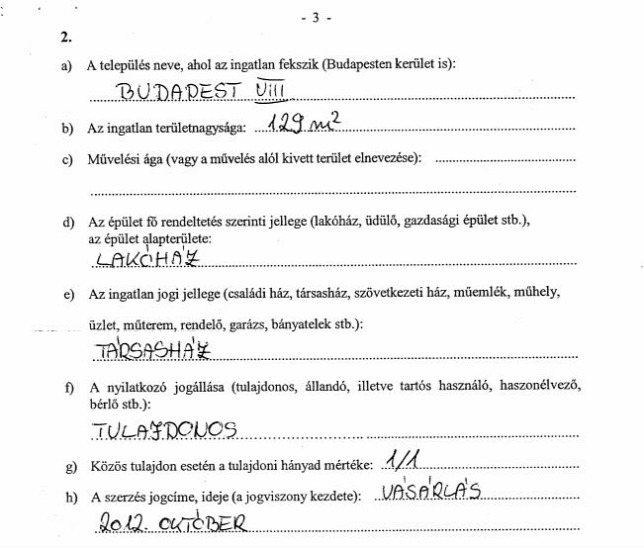 - 3 -
2.
a) A település neve, ahol az ingatlan fekszik (Budapesten kerület is):
BUDAPEST VIII
b) Az ingatlan területnagysága: 129 m²
c) Művelési ága (vagy a művelés alól kivett terület elnevezése):
d) Az épület fő rendeltetés szerinti jellege (lakóház, üdülő, gazdasági épület stb.),
az épület alapterülete:
LAKÓHÁZ
e) Az ingatlan jogi jellege (családi ház, társasház, szövetkezeti ház, műemlék, műhely,
üzlet, műterem, rendelő, garázs, bányatelek stb.):
TÁRSASHÁZ
f) A nyilatkozó jogállása (tulajdonos, állandó, illetve tartós használó, haszonélvező,
bérlő stb.):
TULAJDONOS
g) Közös tulajdon esetén a tulajdoni hányad mértéke: 1/1
h) A szerzés jogcíme, ideje (a jogviszony kezdete): VÁSÁRLÁS
2012. OKTÓBER